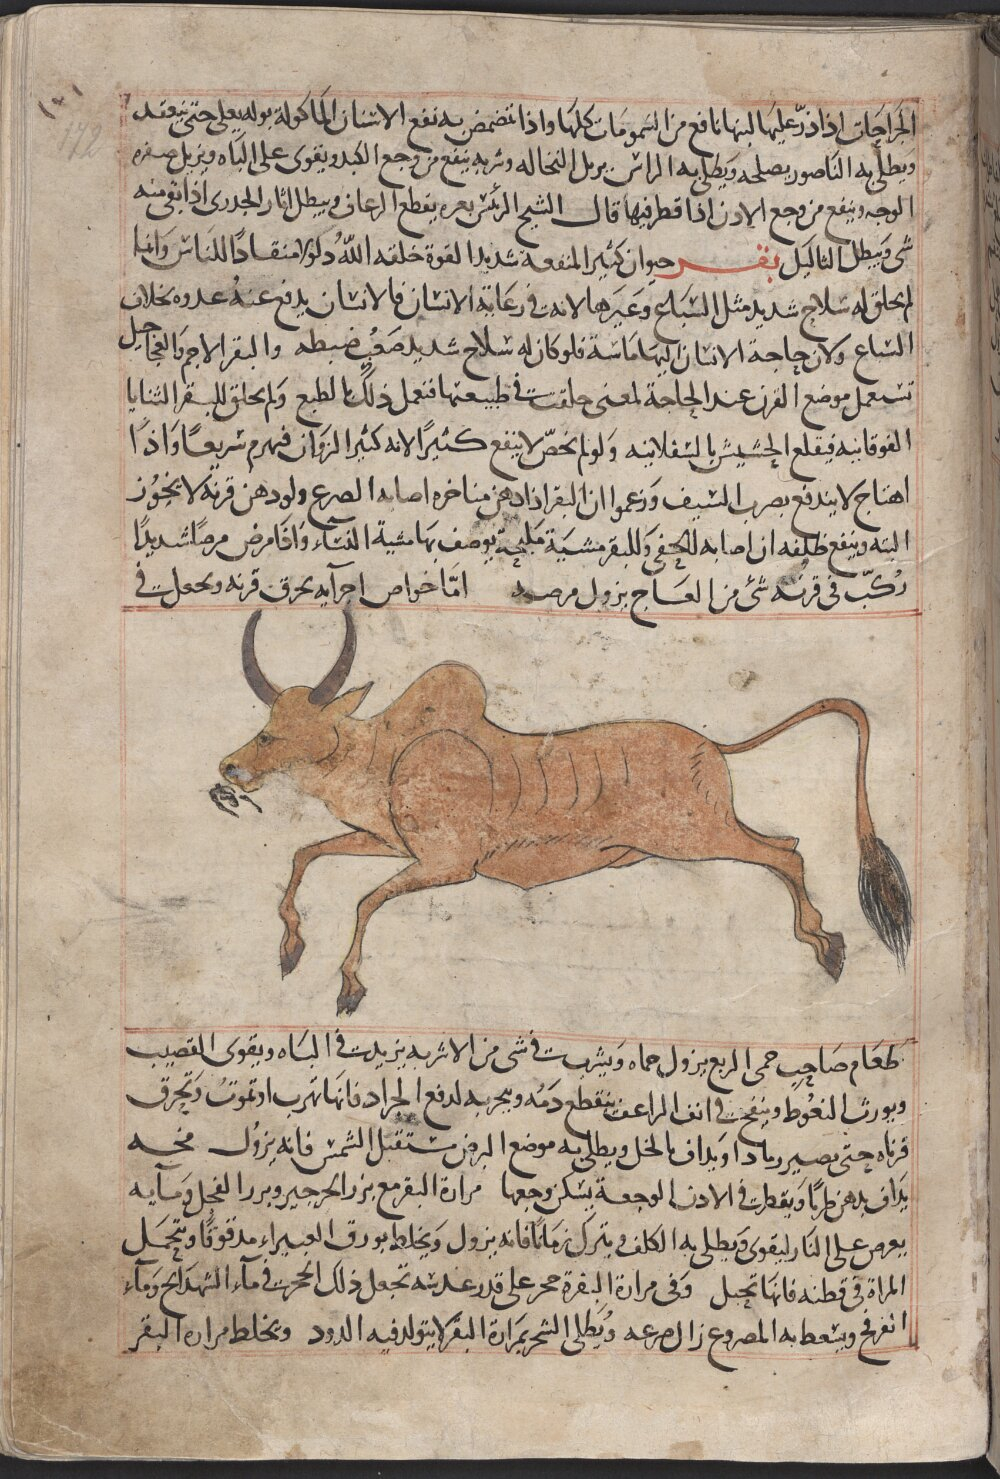 172
الجراحات اذا ذرّ عليها لبنها نافع من السمومات كلها واذا تمضمض به نفع الاسنان الماكولة بوله يغلى حتى ينعقد
ويطلى به الناصور يصلحه ويطلى به الراس يزيل النخاله وشربه ينفع من وجع الكبد ويقوى على الباه ويزيل صفره
الوجه وينفع من وجع الاذن اذا قطر فيها قال الشيخ الرئيس بعره يقطع الرعاف ويبطل اثار الجدرى اذا بقى منه
شى ويبطل الثاليل بقر حيوان كثير المنفعه شديد القوة خلقه الله ذلولا منقادًا للناس وانما
لم يخلق له سلاح شديد مثل السباع وغيرها لانه فى رعاية الانسان فالانسان يدفع عنه عدوه بخلاف
السباع ولان حاجة الانسان اليها ماسة فلو كان له سلاح شديد صعب ضبطه والبقر الاجم والعجاجيل
تستعمل موضع القرن عند الحاجة لمعنى خلقت فى طبيعتها فتعمل ذلك بالطبع ولم يخلق للبقر الثنايا
الفوقانيه فيقلع الحشيش بالسفلانيه ولو لم يخصّ لا ينفع كثيرًا لانه كثير النزوان فيهرم سريعًا واذا
اهتاج لا يندفع بضرب السيف وزعموا ان البقر اذا دهن مناخره اصابه الصرع ولو دهن قرنه لا يخور
البته وينفع ظلفه ان اصابه الحفى وللبقر مشية مليحة يوصف بها مشية النساء واذا مرض مرضًا شديدًا
ركّب فى قرنه شئ من العاج يزول مرضه امّا خواص اجزآيه يحرق قرنه ويجعل فى
طعام صاحب حمى الربع يزول حماه ويشرب فى شى من الاشربه يزيد فى الباه ويقوى القضيب
ويورث النعوط وينفخ فى انف الراعف ينقطع دمه ويبخر به لدفع الجراد فانها تهرب او تموت ويحرق
قرناه حتى يصير رمادا ويداف بالخل ويطلى به موضع البرص مستقبل الشمس فانه يزول مخه
يداف بدهن طريا ويقطر فى الاذن الوجعة يسكن وجعها مرارة البقر مع بزر الجرجير وبزر الفجل ومايه
يعرض على النار ليقوى ويطلى به الكلف ويترك زمانًا فانه يزول ويخلط بورق الغبيراء مدقوقًا وتتحمل
المراة فى قطنه فانها تحبل وفى مرارة البقرة حجر على قدر عدسه تجعل ذلك الحجر فى مآء الشهدانج ومآء
ويسعط به المصروع زال صرعه ويطلى الشجر بمرارة البقر لا يتولد فيه الدود ويخلط مراره البقر